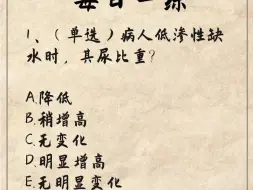 每日一练
1、(单选)病人低渗性缺
水时，其尿比重？
A.降低
B.稍增高
C.无变化
D.明显增高
E.无明显变化